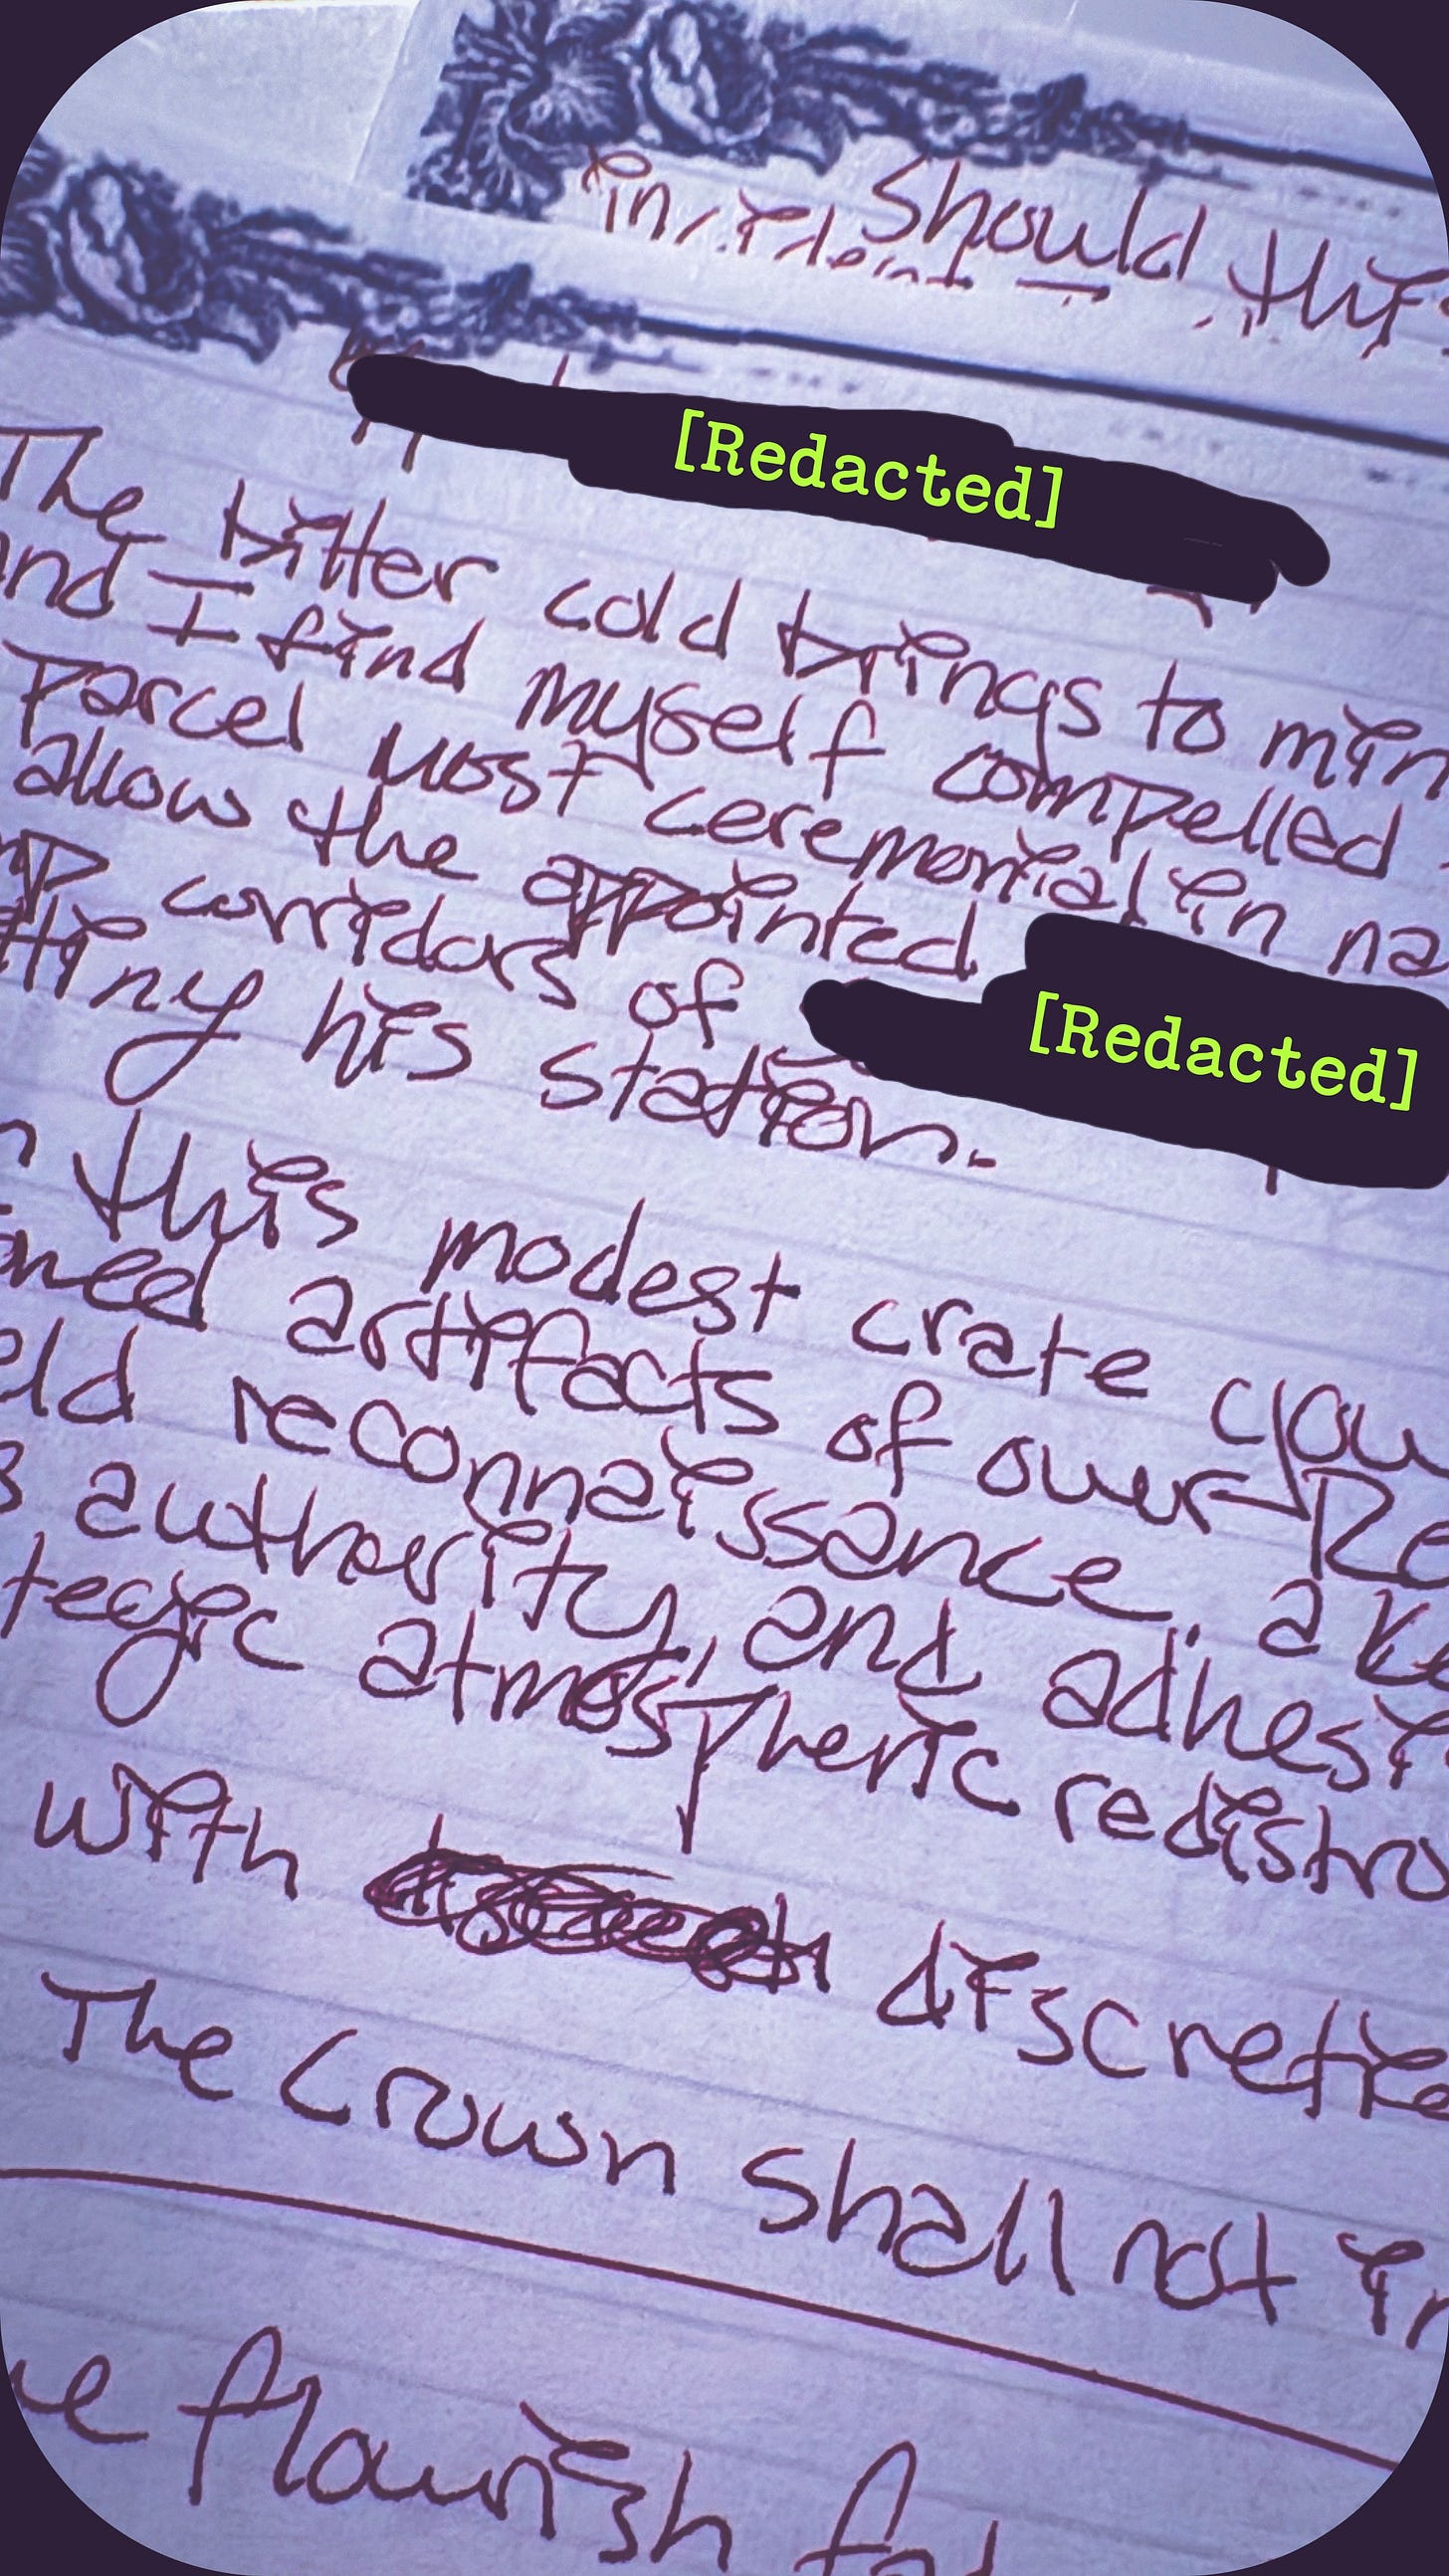 should this
incident
[Redacted]
The bitter cold brings to min
and I find myself compelled
parcel most ceremonial in na
allow the appointed
[Redacted]
mp corridors of
tiny his station.
this modest crate you
oned artifacts of our Re
eld reconnaissance, a ke
s authority, and adhesi
tegic atmospheric redistro
with discretio
The Crown shall not in
ue flourish fa